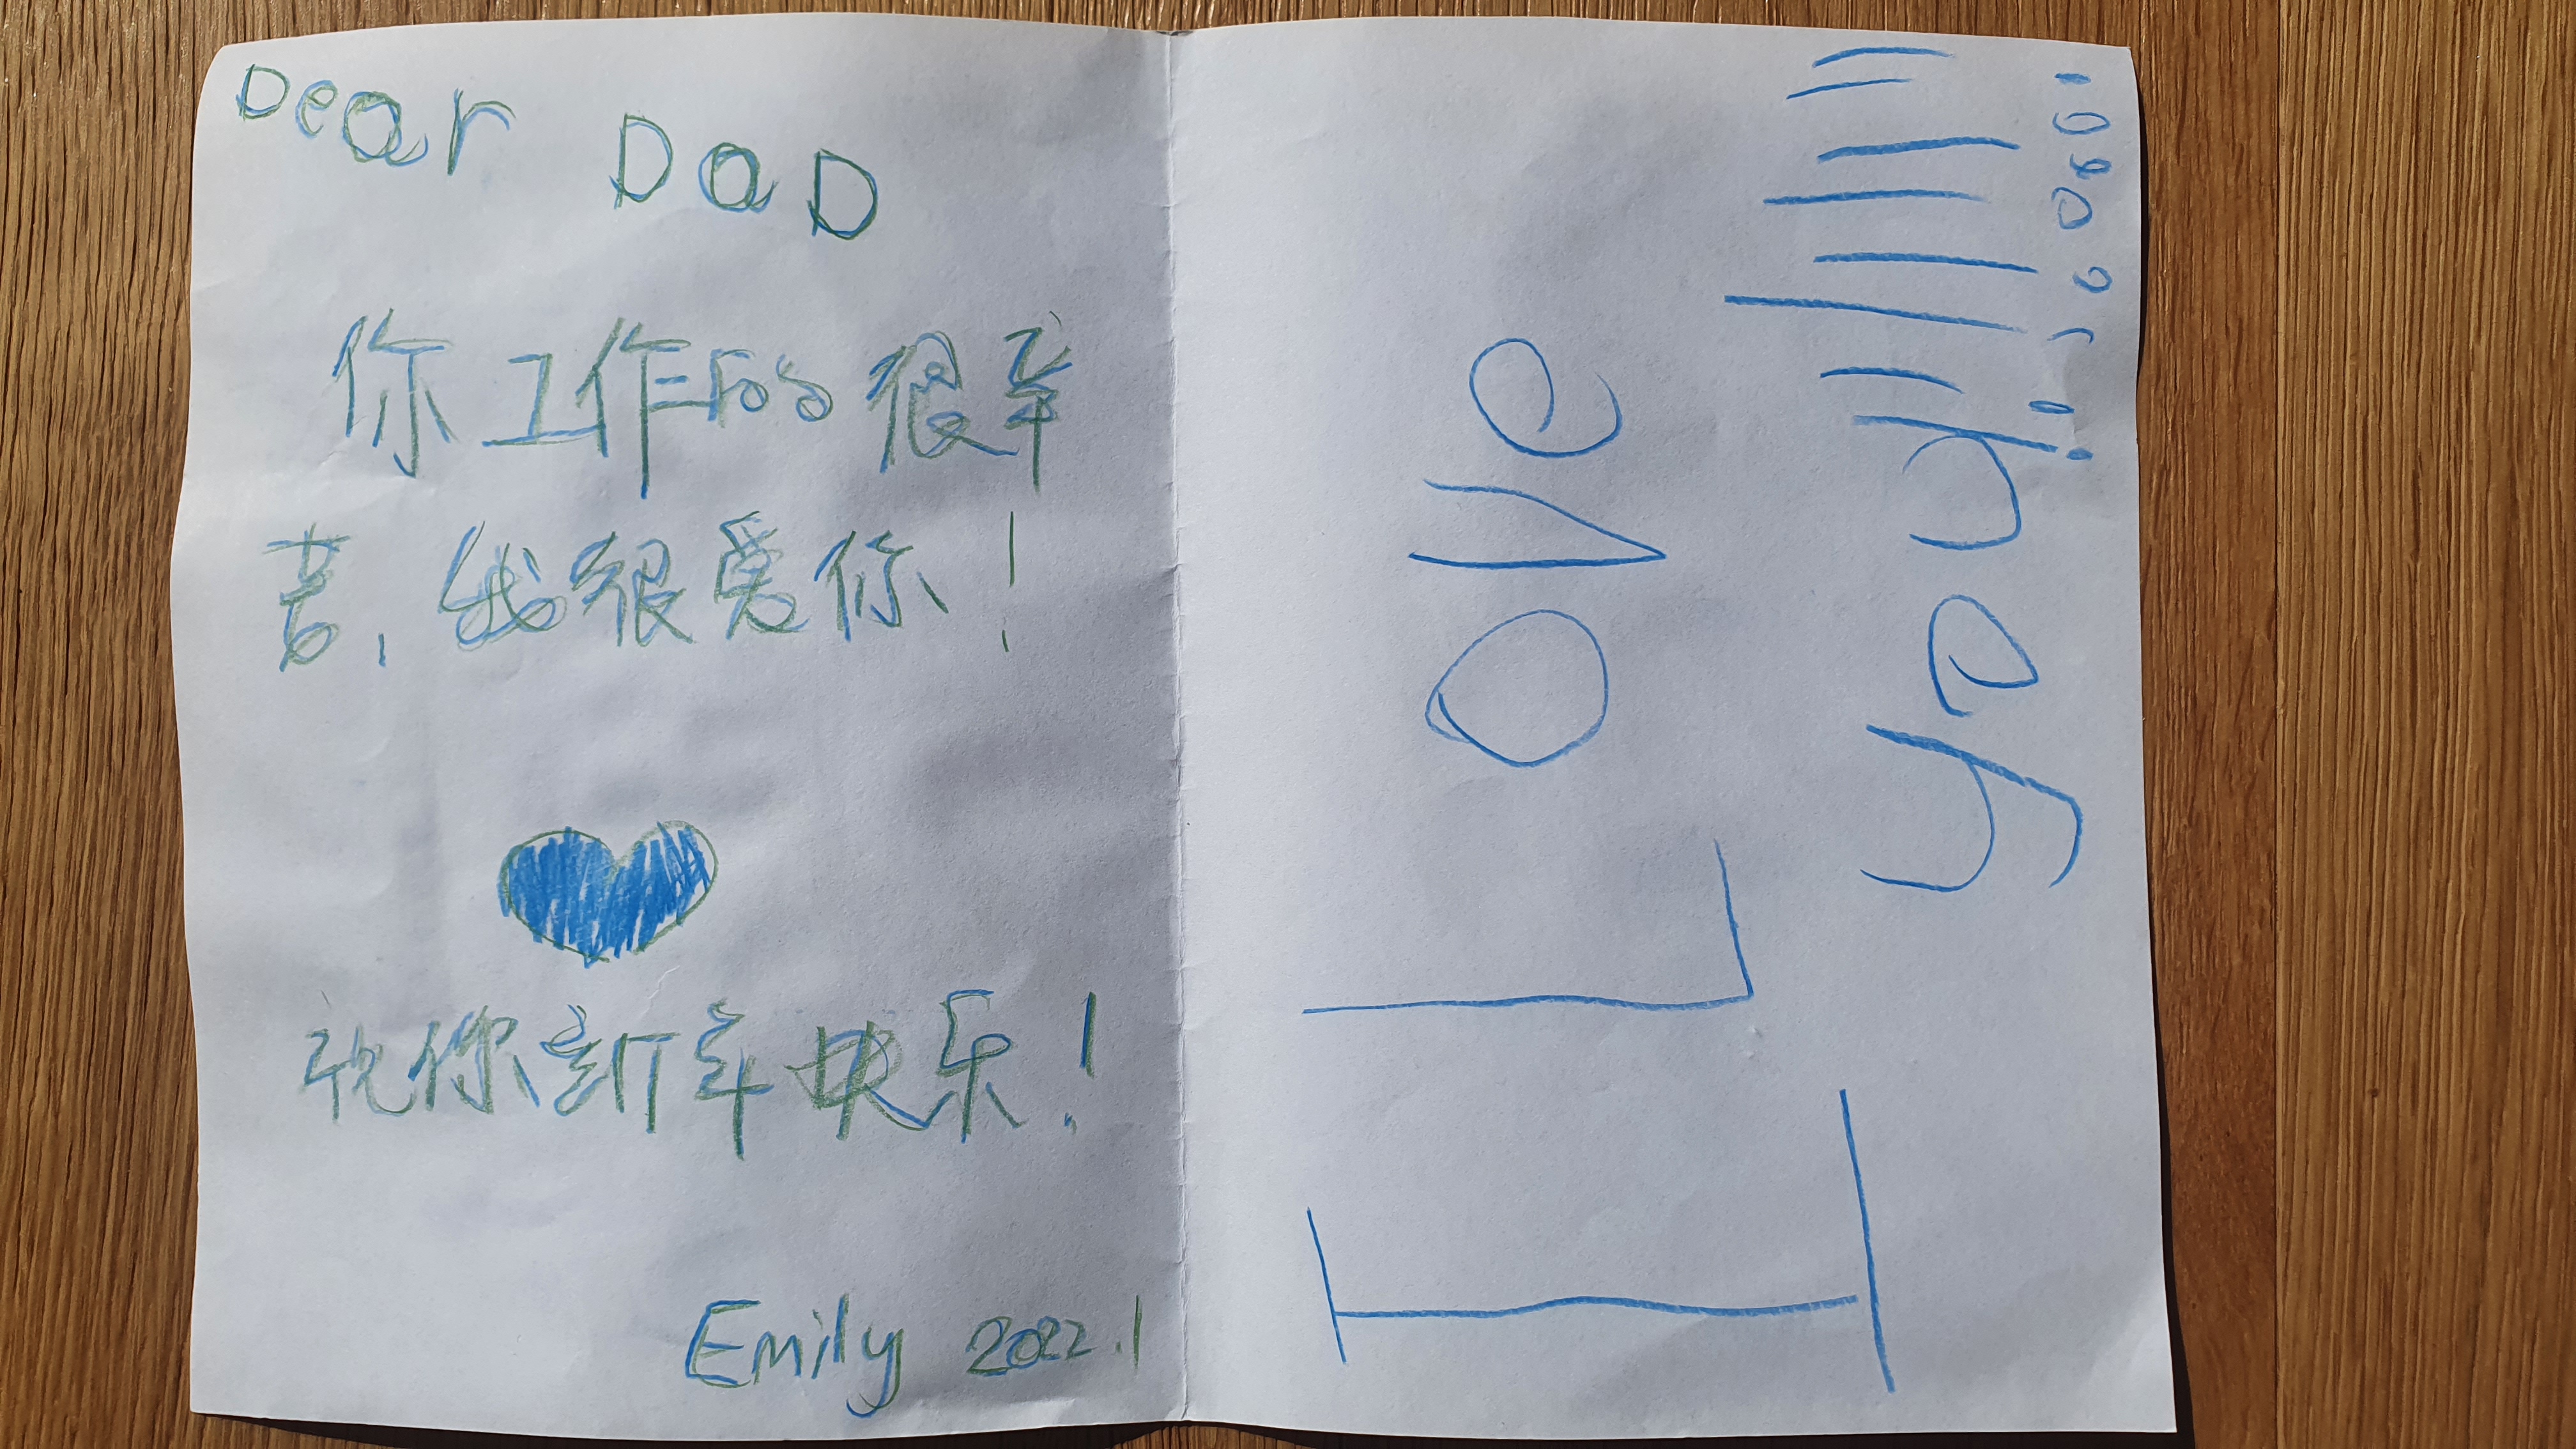 Dear DaD
你工作的很辛
苦,我很爱你!
祝你新年快乐!
Emily 2022.1
I Love
you!!!!!!!!